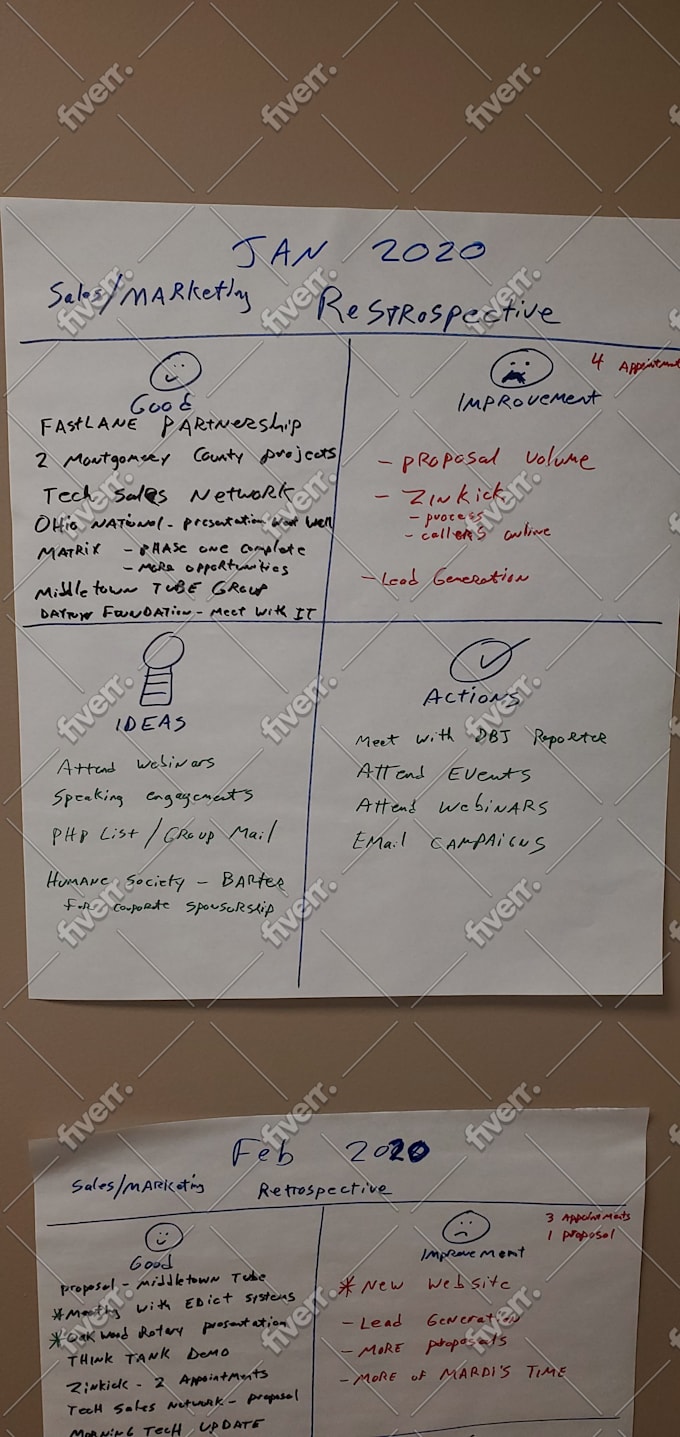 JAN 2020
Sales/MARKeting
ReSTRospective
Good
FASTLANE PARTNership
2 Montgomery County projects
Tech Sales Network
OHio NATiONAL - presentation went well
MATRIX - pHASE one complete
- More opportunities
Middletown TUBE GROUP
DAYTON FOUNDATION - Meet with IT
4 Appointment
IMPROVEMENT
- pROposal Volume
- ZINKICK
- process
- callers online
- Lead Generation
IDEAS
Attend webinars
Speaking engagements
PHP List / GRoup Mail
HUMANE Society - BARTER
For corporate sponsorship
ACTIONS
Meet with DBJ Reporter
ATTend EVENTS
Attend WebiNARS
EMail CAMPAIGNS
Feb 2020
Sales/MARKeting
Retrospective
Good
proposal - Middletown Tube
*Meeting with EDict systems
*Oakwood Rotary presentation
THINK TANK DEMO
Zinkick - 2 Appointments
Tech Sales Network - proposal
MORNING TECH UPDATE
3 Appointments
1 proposal
Improvement
* New Website
- Lead Generation
- MORE proposals
- MORE of MARDI'S TIME
fiverr.